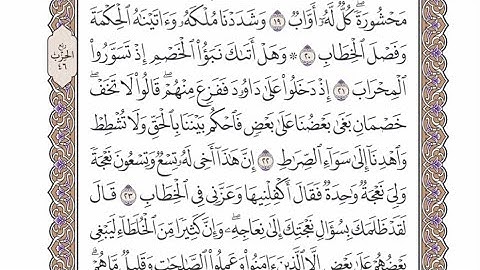 مَحْشُورَةً ۖ كُلٌّ لَّهُۥٓ أَوَّابٌ ١٩ وَشَدَدْنَا مُلْكَهُۥ وَءَاتَيْنَٰهُ ٱلْحِكْمَةَ
وَفَصْلَ ٱلْخِطَابِ ٢٠ ۞ وَهَلْ أَتَىٰكَ نَبَؤُا۟ ٱلْخَصْمِ إِذْ تَسَوَّرُوا۟
ٱلْمِحْرَابَ ٢١ إِذْ دَخَلُوا۟ عَلَىٰ دَاوُۥدَ فَفَزِعَ مِنْهُمْ ۖ قَالُوا۟ لَا تَخَفْ ۖ
خَصْمَانِ بَغَىٰ بَعْضُنَا عَلَىٰ بَعْضٍ فَٱحْكُم بَيْنَنَا بِٱلْحَقِّ وَلَا تُشْطِطْ
وَٱهْدِنَآ إِلَىٰ سَوَآءِ ٱلصِّرَٰطِ ٢٢ إِنَّ هَٰذَآ أَخِى لَهُۥ تِسْعٌ وَتِسْعُونَ نَعْجَةً
وَلِىَ نَعْجَةٌ وَٰحِدَةٌ فَقَالَ أَكْفِلْنِيهَا وَعَزَّنِى فِى ٱلْخِطَابِ ٢٣ قَالَ
لَقَدْ ظَلَمَكَ بِسُؤَالِ نَعْجَتِكَ إِلَىٰ نِعَاجِهِۦ ۖ وَإِنَّ كَثِيرًا مِّنَ ٱلْخُلَطَآءِ لَيَبْغِى
بَعْضُهُمْ عَلَىٰ بَعْضٍ إِلَّا ٱلَّذِينَ ءَامَنُوا۟ وَعَمِلُوا۟ ٱلصَّٰلِحَٰتِ وَقَلِيلٌ مَّا هُمْ ۗ
ربع
الحزب
٤٦